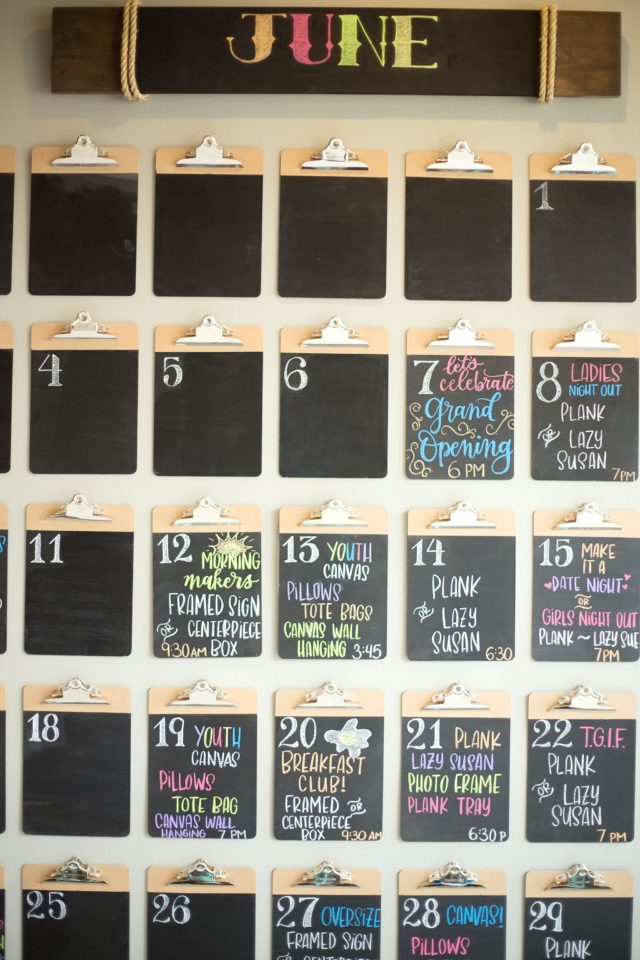 JUNE
1
4
5
6
7 let's
celebrate
Grand
Opening
6 PM
8 LADIES
NIGHT OUT
PLANK
OR LAZY
SUSAN
7PM
11
12
MORNING
makers
FRAMED SIGN
OR CENTERPIECE
9:30AM BOX
13 YOUTH
CANVAS
PILLOWS
TOTE BAGS
CANVAS WALL
HANGING 3:45
14
PLANK
OR LAZY
SUSAN
6:30
15 MAKE
IT A
DATE NIGHT
OR
GIRLS NIGHT OUT
PLANK ~ LAZY SUE
7PM
18
19 YOUTH
CANVAS
PILLOWS
TOTE BAG
CANVAS WALL
HANGING 7 PM
20
BREAKFAST
CLUB!
FRAMED OR
CENTERPIECE
BOX 9:30 AM
21 PLANK
LAZY SUSAN
PHOTO FRAME
PLANK TRAY
6:30 P
22 T.G.I.F.
PLANK
OR LAZY
SUSAN
7 PM
25
26
27 OVERSIZE
FRAMED SIGN
28 CANVAS!
PILLOWS
29
PLANK